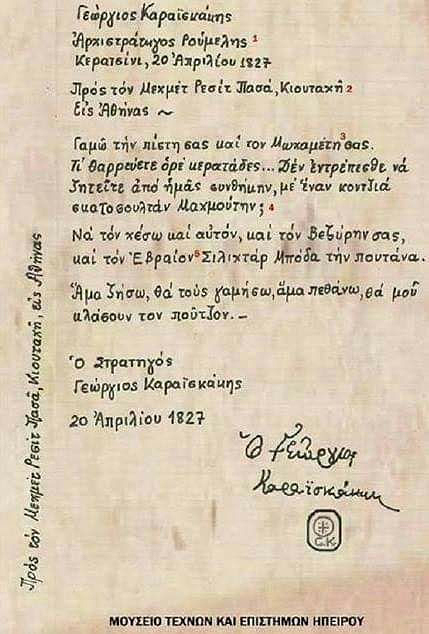 Γεώργιος Καραϊσκάκης
Ἀρχιστράτηγος Ρούμελης 1
Κερατσίνι, 20 Ἀπριλίου 1827
Πρὸς τὸν Μεχμὲτ Ρεσὶτ Πασᾶ, Κιουταχῆ 2
Εἰς Ἀθήνας ~
Γαμῶ τὴν πίστη σας καὶ τον Μωχαμέτη 3 σας.
Τί θαρρεύετε ὀρὲ κερατάδες... Δὲν ἐντρέπεσθε νὰ
ζητεῖτε ἀπὸ ἡμᾶς συνθήκην, μὲ ἕναν κοντζιὰ
σκατοσουλτὰν Μαχμούτην; 4
Νὰ τὸν χέσω καὶ αὐτόν, καὶ τὸν Βεζύρην σας,
καὶ τὸν Ἑβραῖον 5 Σιλιχτὰρ Μπόδα τὴν πουτάνα.
Ἅμα ζήσω, θὰ τοὺς γαμήσω, ἅμα πεθάνω, θὰ μοῦ
κλάσουν τον ποῦτζον. —
Ὁ Στρατηγὸς
Γεώργιος Καραϊσκάκης
20 Ἀπριλίου 1827
Ὁ Γεώργιος
Καραϊσκάκης
Γ.Κ.
Πρὸς τὸν Μεχμὲτ Ρεσὶτ Πασᾶ, Κιουταχῆ, εἰς Ἀθήνας
ΜΟΥΣΕΙΟ ΤΕΧΝΩΝ ΚΑΙ ΕΠΙΣΤΗΜΩΝ ΗΠΕΙΡΟΥ